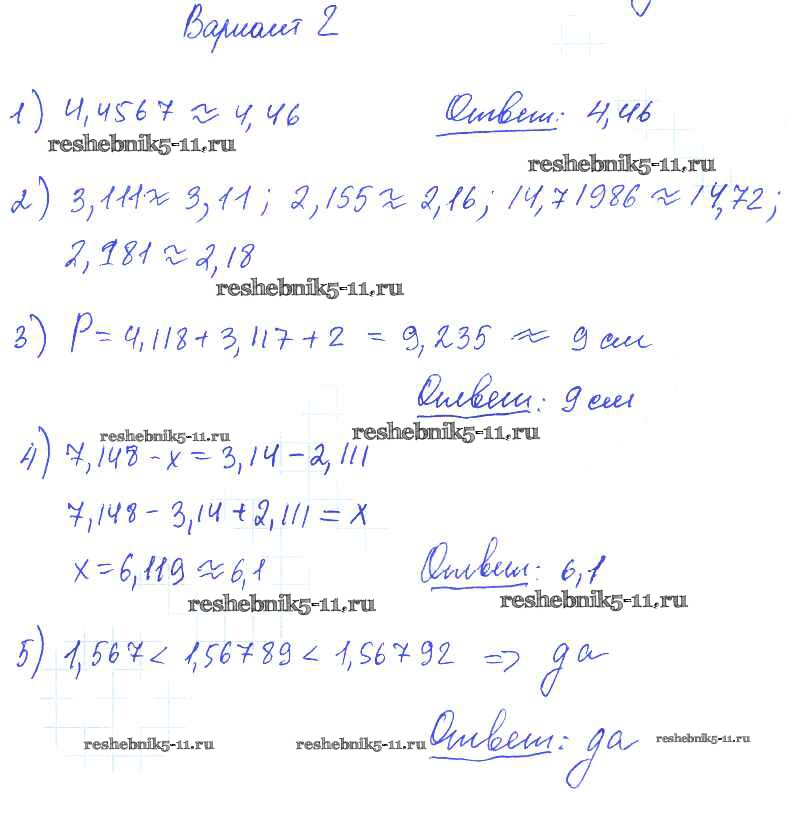 Вариант 2
1) 4,4567 ≈ 4,46 Ответ: 4,46
reshebnik5-11.ru
reshebnik5-11.ru
2) 3,111 ≈ 3,11; 2,155 ≈ 2,16; 14,71986 ≈ 14,72;
2,181 ≈ 2,18
reshebnik5-11.ru
3) P = 4,118 + 3,117 + 2 = 9,235 ≈ 9 см
Ответ: 9 см
reshebnik5-11.ru reshebnik5-11.ru
4) 7,148 - x = 3,14 - 2,111
7,148 - 3,14 + 2,111 = x
x = 6,119 ≈ 6,1 Ответ: 6,1
reshebnik5-11.ru reshebnik5-11.ru
5) 1,567 < 1,56789 < 1,56792 => да
Ответ: да
reshebnik5-11.ru reshebnik5-11.ru reshebnik5-11.ru